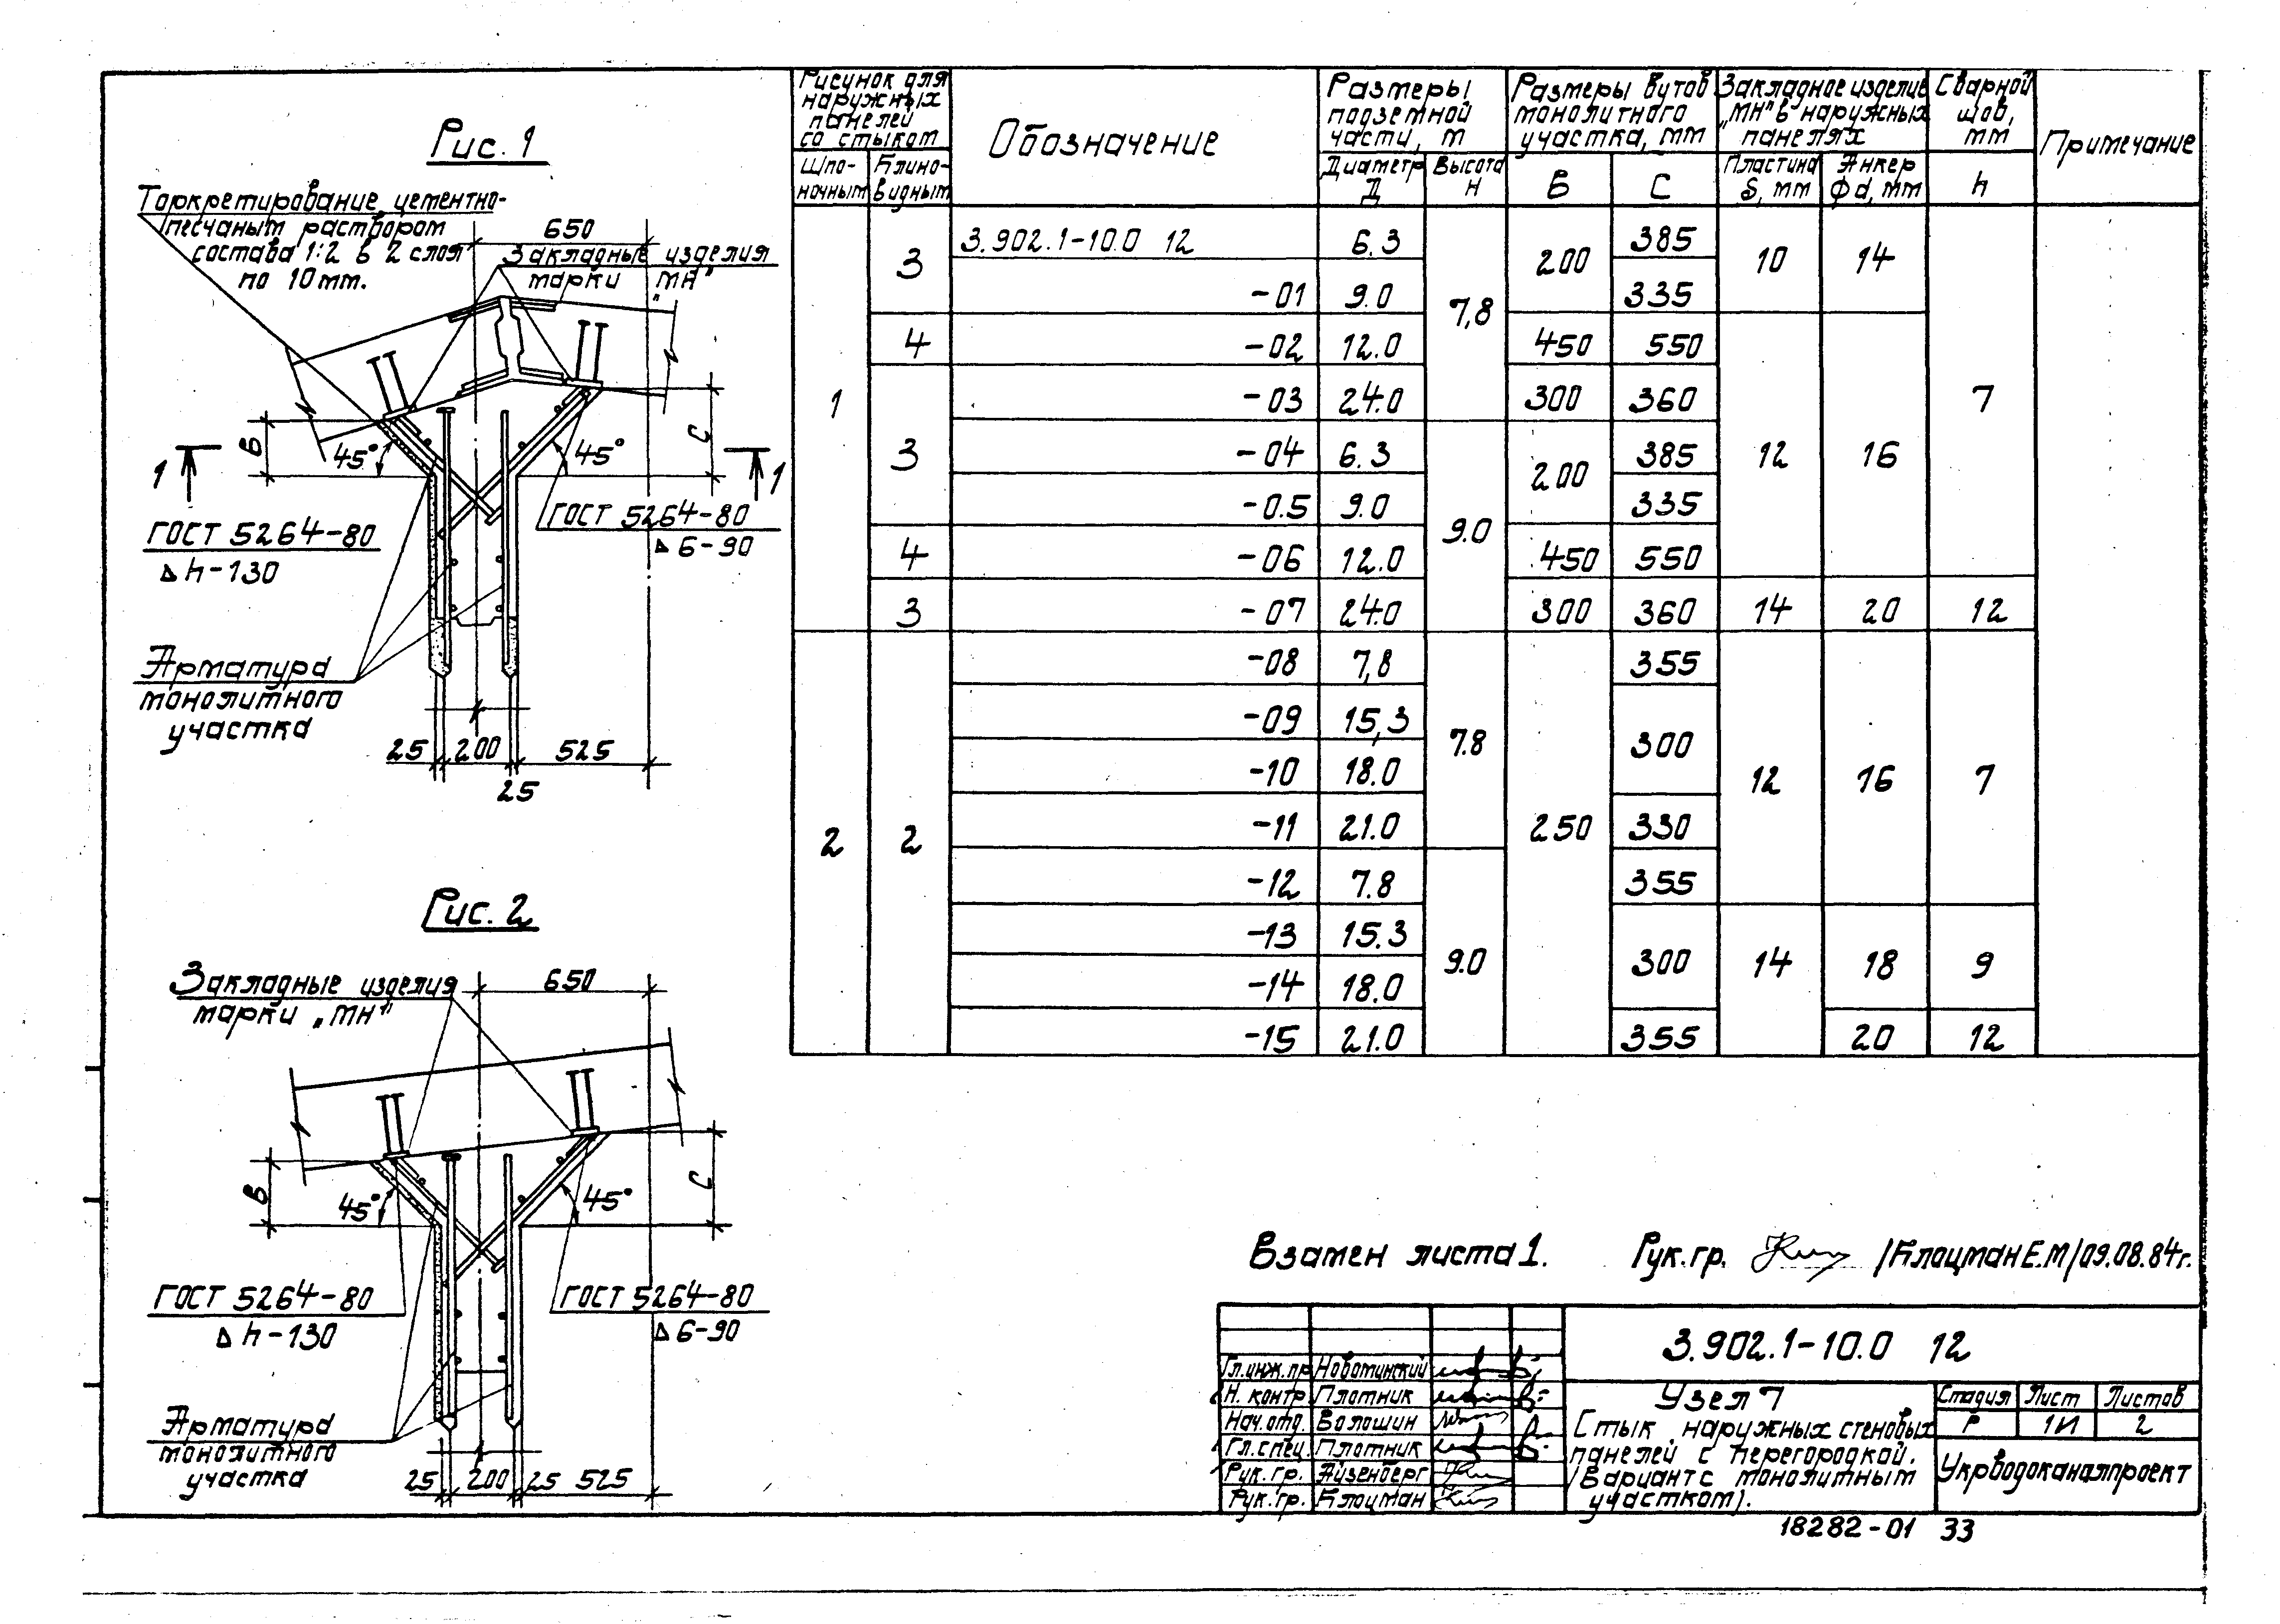 Рис. 1
Торкретирование цементно-
песчаным раствором
состава 1:2 в 2 слоя
по 10мм.
650
Закладные изделия
марки „МН"
В
45°
45°
С
1
1
ГОСТ 5264-80
⊿ h-130
ГОСТ 5264-80
⊿ 6-90
Арматура
монолитного
участка
25
200
525
25
Рис. 2
Закладные изделия
марки „МН"
650
В
45°
45°
С
ГОСТ 5264-80
⊿ h-130
ГОСТ 5264-80
⊿ 6-90
Арматура
монолитного
участка
25 200 25 525
Рисунок для
наружных
панелей
со стыком
Обозначение
Размеры
подземной
части, м
Размеры вутов
монолитного
участка, мм
Закладное изделие
„МН" в наружных
панелях
Сварной
шов,
мм
Примечание
Шпо-
ночным
Блино-
видным
Диаметр
Д
Высота
Н
В
С
Пластина
δ, мм
Анкер
ф d, мм
h
1 3 3.902.1-10.0 12 6.3 7,8 200 385 10 14 7
-01 9.0 335
4 -02 12.0 450 550 12 16
3 -03 24.0 300 360
-04 6.3 9.0 200 385
-0.5 9.0 335
4 -06 12.0 450 550
3 -07 24.0 300 360 14 20 12
2 2 -08 7,8 7.8 250 355 12 16 7
-09 15,3 300
-10 18.0
-11 21.0 330
-12 7.8 9.0 355
-13 15.3 300 14 18 9
-14 18.0
-15 21.0 355 20 12
Взамен листа 1. Рук.гр. /Блоцман Е.М/ 09.08.84г.
3.902.1-10.0 12
Гл.инж.пр Новоминский
Н. контр Плотник
Нач.отд. Волошин
Гл.спец. Плотник
Рук.гр. Айзенберг
Рук.гр. Блоцман
Узел 7
Стык наружных стеновых
панелей с перегородкой.
(Вариант с монолитным
участком).
Стадия Лист Листов
Р 1И 2
Укрводоканалпроект
18282-01 33